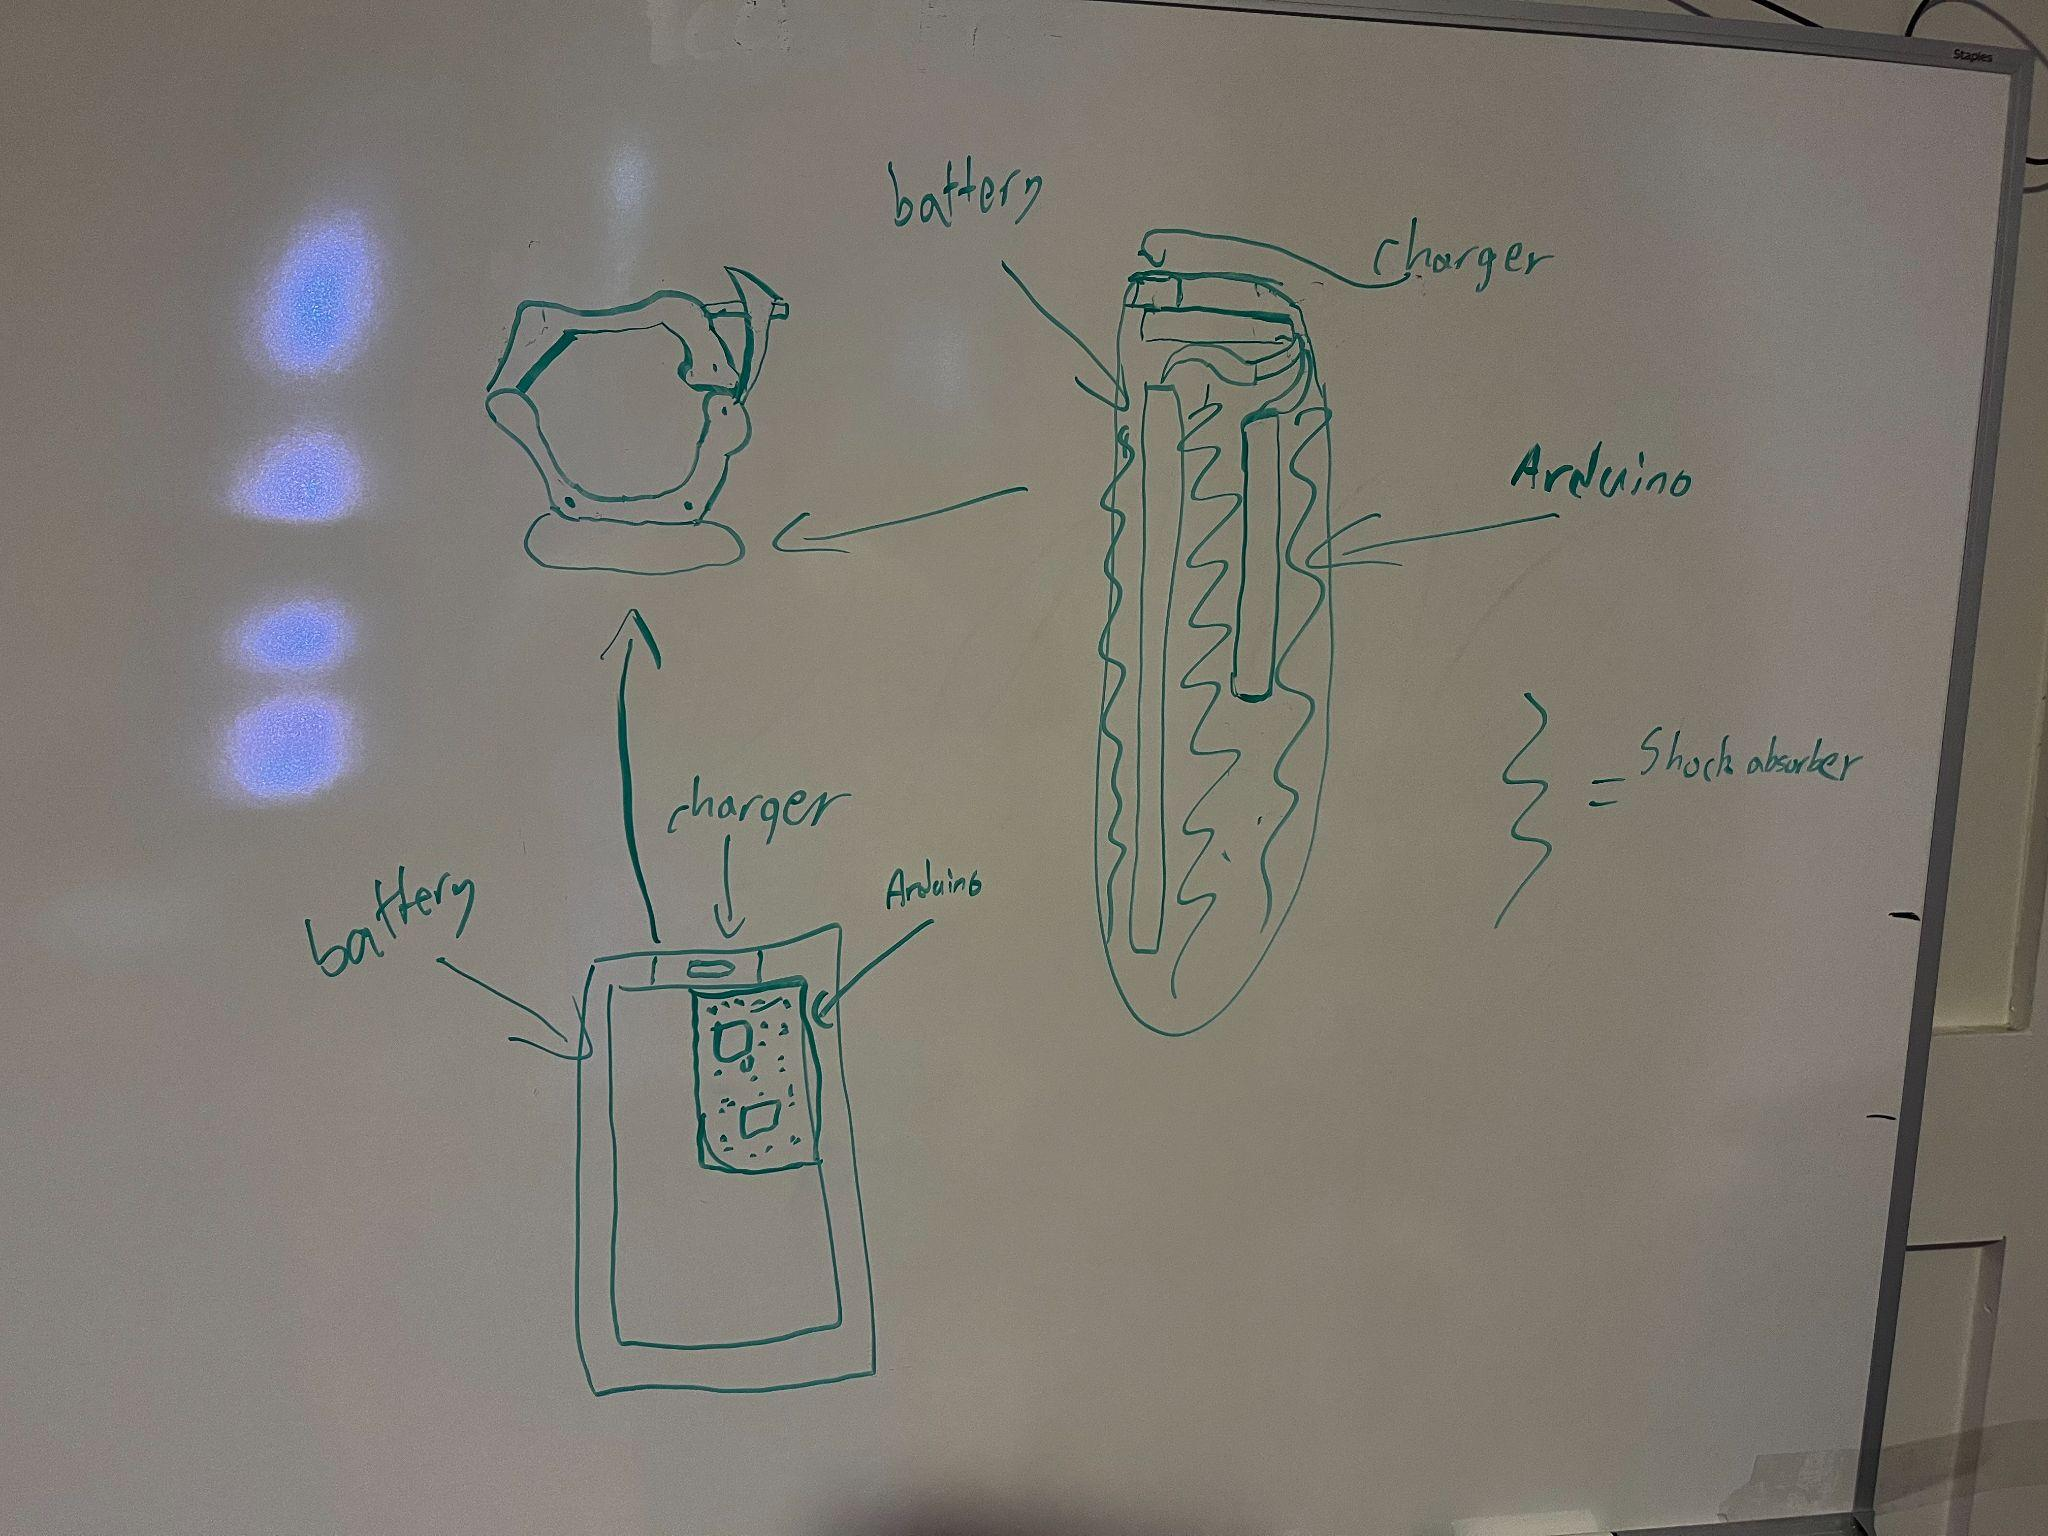 Staples
battery
charger
Arduino
= Shock absorber
charger
battery
Arduino